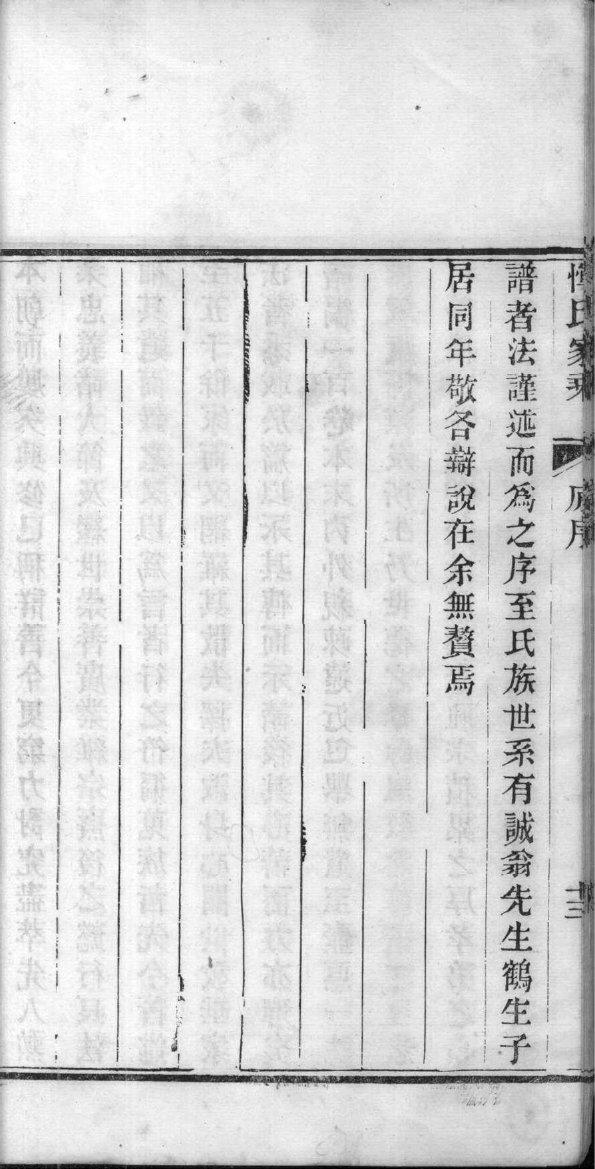 惲氏家乘
原序
十三
譜者法謹述而爲之序至氏族世系有誠翁先生鶴生子
居同年敬各辯說在余無贅焉